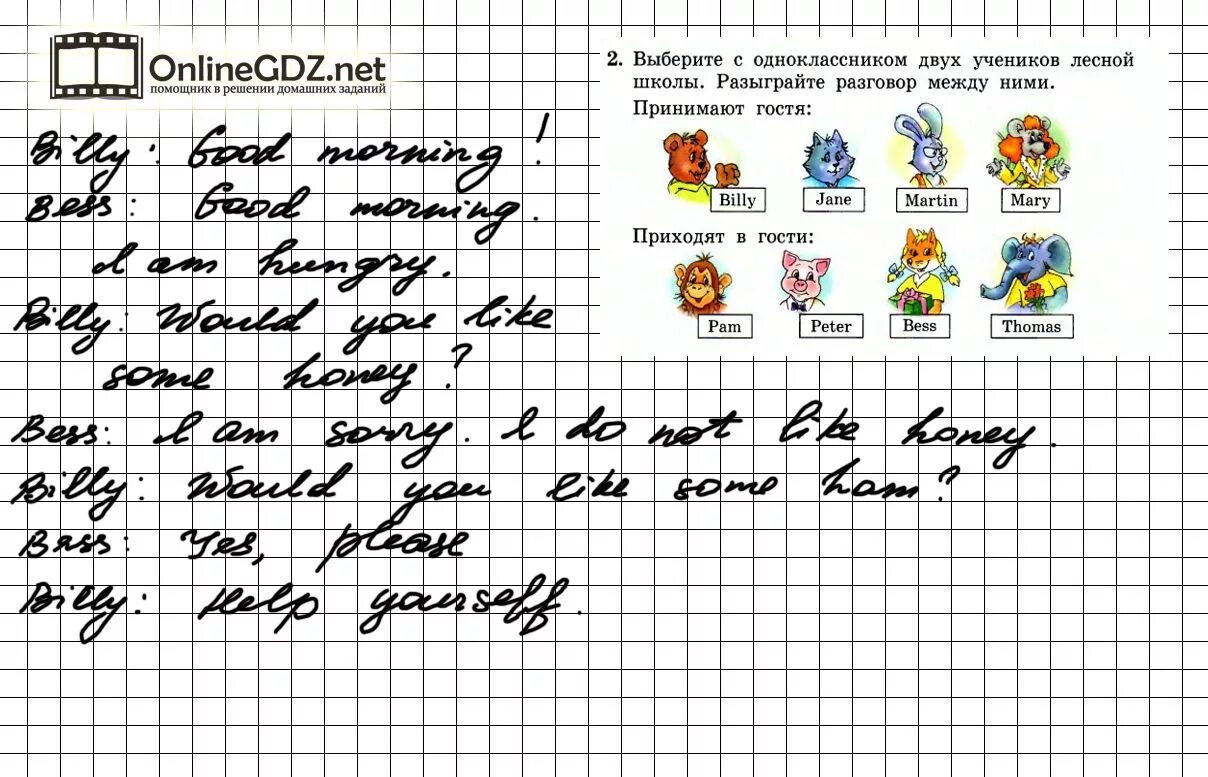 OnlineGDZ.net
помощник в решении домашних заданий
2. Выберите с одноклассником двух учеников лесной
школы. Разыграйте разговор между ними.
Принимают гостя:
Billy Jane Martin Mary
Приходят в гости:
Pam Peter Bess Thomas
Billy: Good morning!
Bess: Good morning.
I am hungry.
Billy: Would you like
some honey?
Bess: I am sorry. I do not like honey.
Billy: Would you like some ham?
Bess: Yes, please
Billy: Help yourself.